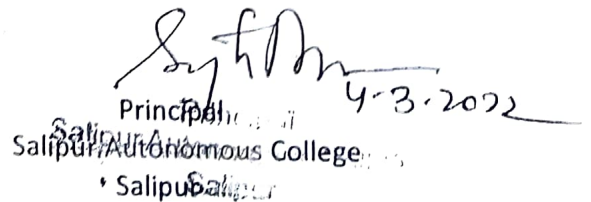 4-3-2022
Principal
Salipur Autonomous College
Salipur